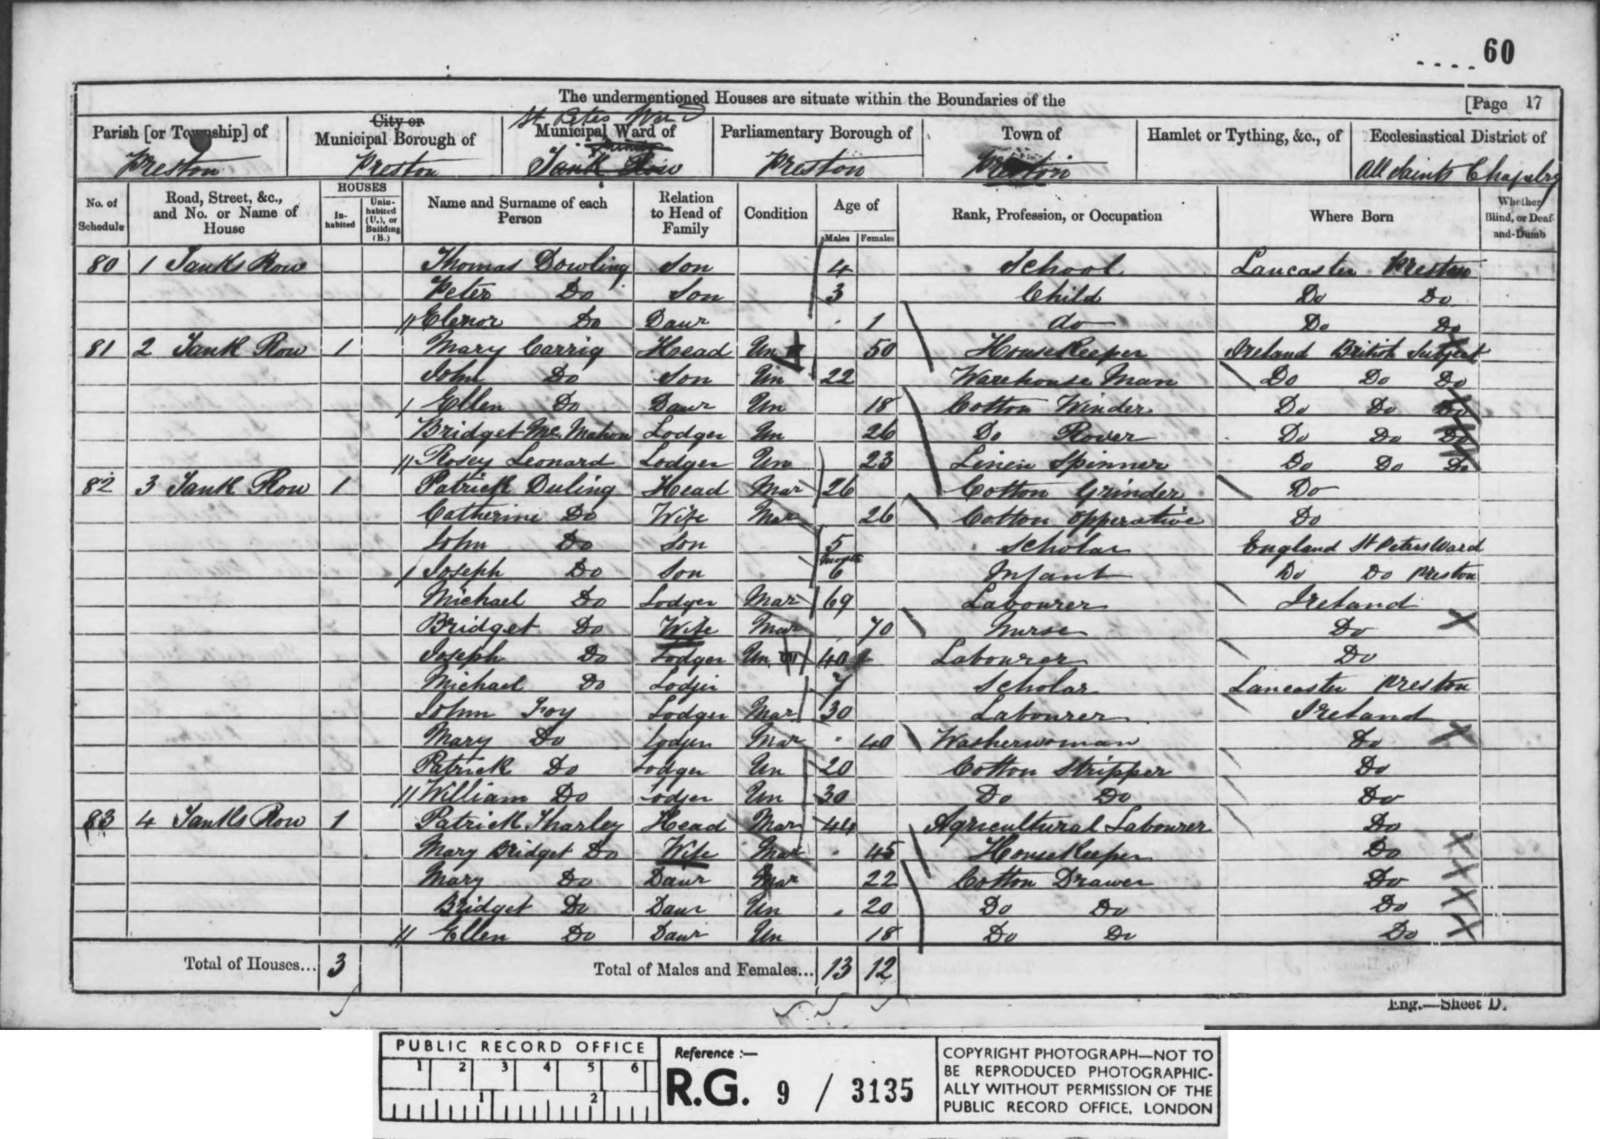 60
The undermentioned Houses are situate within the Boundaries of the
[Page 17
Parish [or Township] of
City or
Municipal Borough of
St Peters Ward
Municipal Ward of
Parliamentary Borough of
Town of
Hamlet or Tything, &c., of
Ecclesiastical District of
Preston Preston Tank Row Preston Preston All Saints Chapelry
No. of Schedule
Road, Street, &c., and No. or Name of House
HOUSES
In-habited
Unin-habited (U.), or Building (B.)
Name and Surname of each Person
Relation to Head of Family
Condition
Age of
Males Females
Rank, Profession, or Occupation
Where Born
Whether Blind, or Deaf-and-Dumb
80 1 Tanks Row Thomas Dowling Son 4 School Lancaster Preston
Peter Do Son 3 Child Do Do
Elenor Do Daur 1 do Do Do
81 2 Tank Row 1 Mary Carrig Head Un 50 HouseKeeper Ireland British Subject
John Do Son Un 22 Warehouse Man Do Do Do
Ellen Do Daur Un 18 Cotton Winder Do Do Do
Bridget Mc Mahon Lodger Un 26 Do Rover Do Do Do
Rosey Leonard Lodger Un 23 Linen Spinner Do Do Do
82 3 Tank Row 1 Patrick Duling Head Mar 26 Cotton Grinder Do
Catherine Do Wife Mar 26 Cotton Opperative Do
John Do Son 5 Scholar England St Peters Ward
Joseph Do Son 6 Infant Do Do Preston
Michael Do Lodger Mar 69 Labourer Ireland
Bridget Do Wife Mar 70 Nurse Do
Joseph Do Lodger Un W 40 Labourer Do
Michael Do Lodjer 7 Scholar Lancaster Preston
John Foy Lodger Mar 30 Labourer Ireland
Mary Do Lodjer Mar 40 Washerwoman Do
Patrick Do Lodger Un 20 Cotton Stripper Do
William Do Lodjer Un 30 Do Do Do
83 4 Tanks Row 1 Patrick Tharley Head Mar 44 Agricultural Labourer Do
Mary Bridget Do Wife Mar 45 HouseKeeper Do
Mary Do Daur Mar 22 Cotton Drawer Do
Bridget Do Daur Un 20 Do Do Do
Ellen Do Daur Un 18 Do Do Do
Total of Houses... 3 Total of Males and Females... 13 12
Eng.—Sheet D.
PUBLIC RECORD OFFICE
1 2 3 4 5 6
1 2
Reference :—
R.G. 9 / 3135
COPYRIGHT PHOTOGRAPH—NOT TO
BE REPRODUCED PHOTOGRAPHIC-
ALLY WITHOUT PERMISSION OF THE
PUBLIC RECORD OFFICE, LONDON